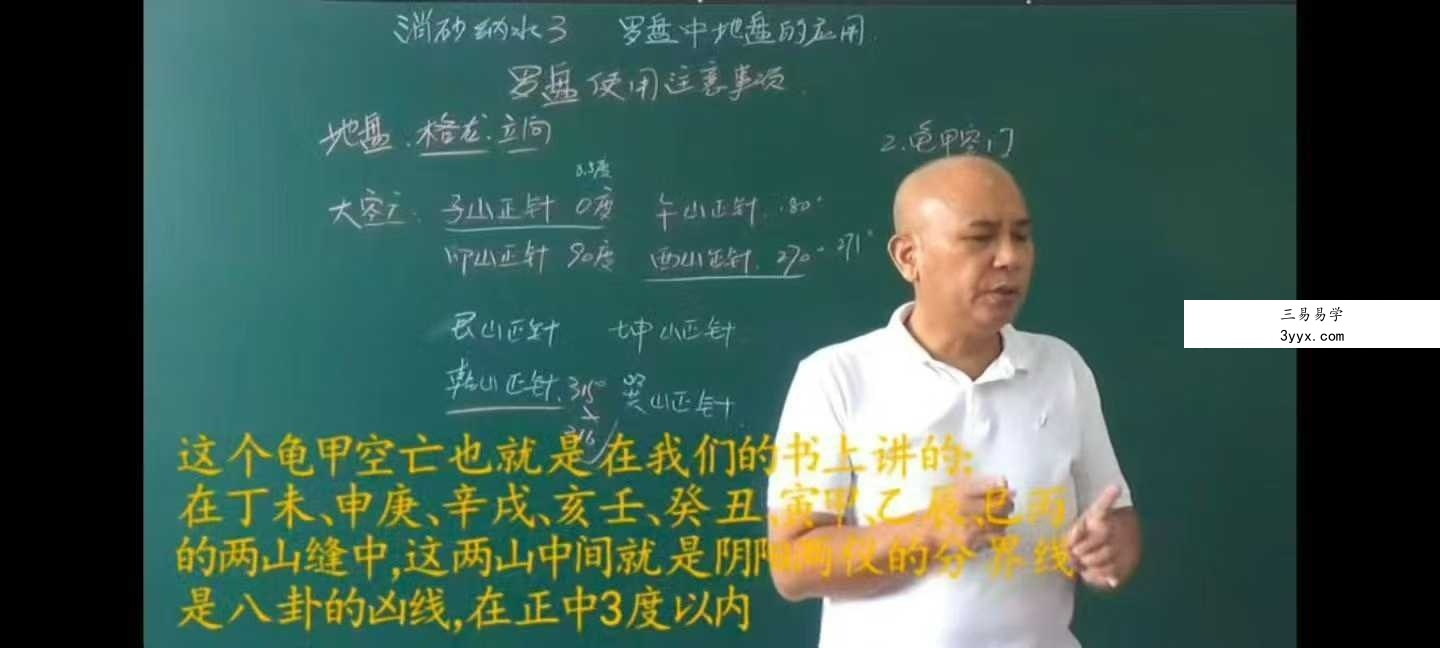 消砂纳水3 罗盘中地盘的应用.
罗盘使用注意事项.
地盘.格龙.立向
2.龟甲空门
3.5度
大空亡. 子山正针 0度 午山正针.180°
卯山正针 90度 酉山正针.270°-271°
三易易学
3yyx.com
艮山正针 坤山正针
乾山正针.315° 巽山正针.
316
这个龟甲空亡也就是在我们的书上讲的:
在丁未、申庚、辛戌、亥壬、癸丑、寅甲、乙辰、巳丙
的两山缝中,这两山中间就是阴阳两仪的分界线
是八卦的凶线,在正中3度以内